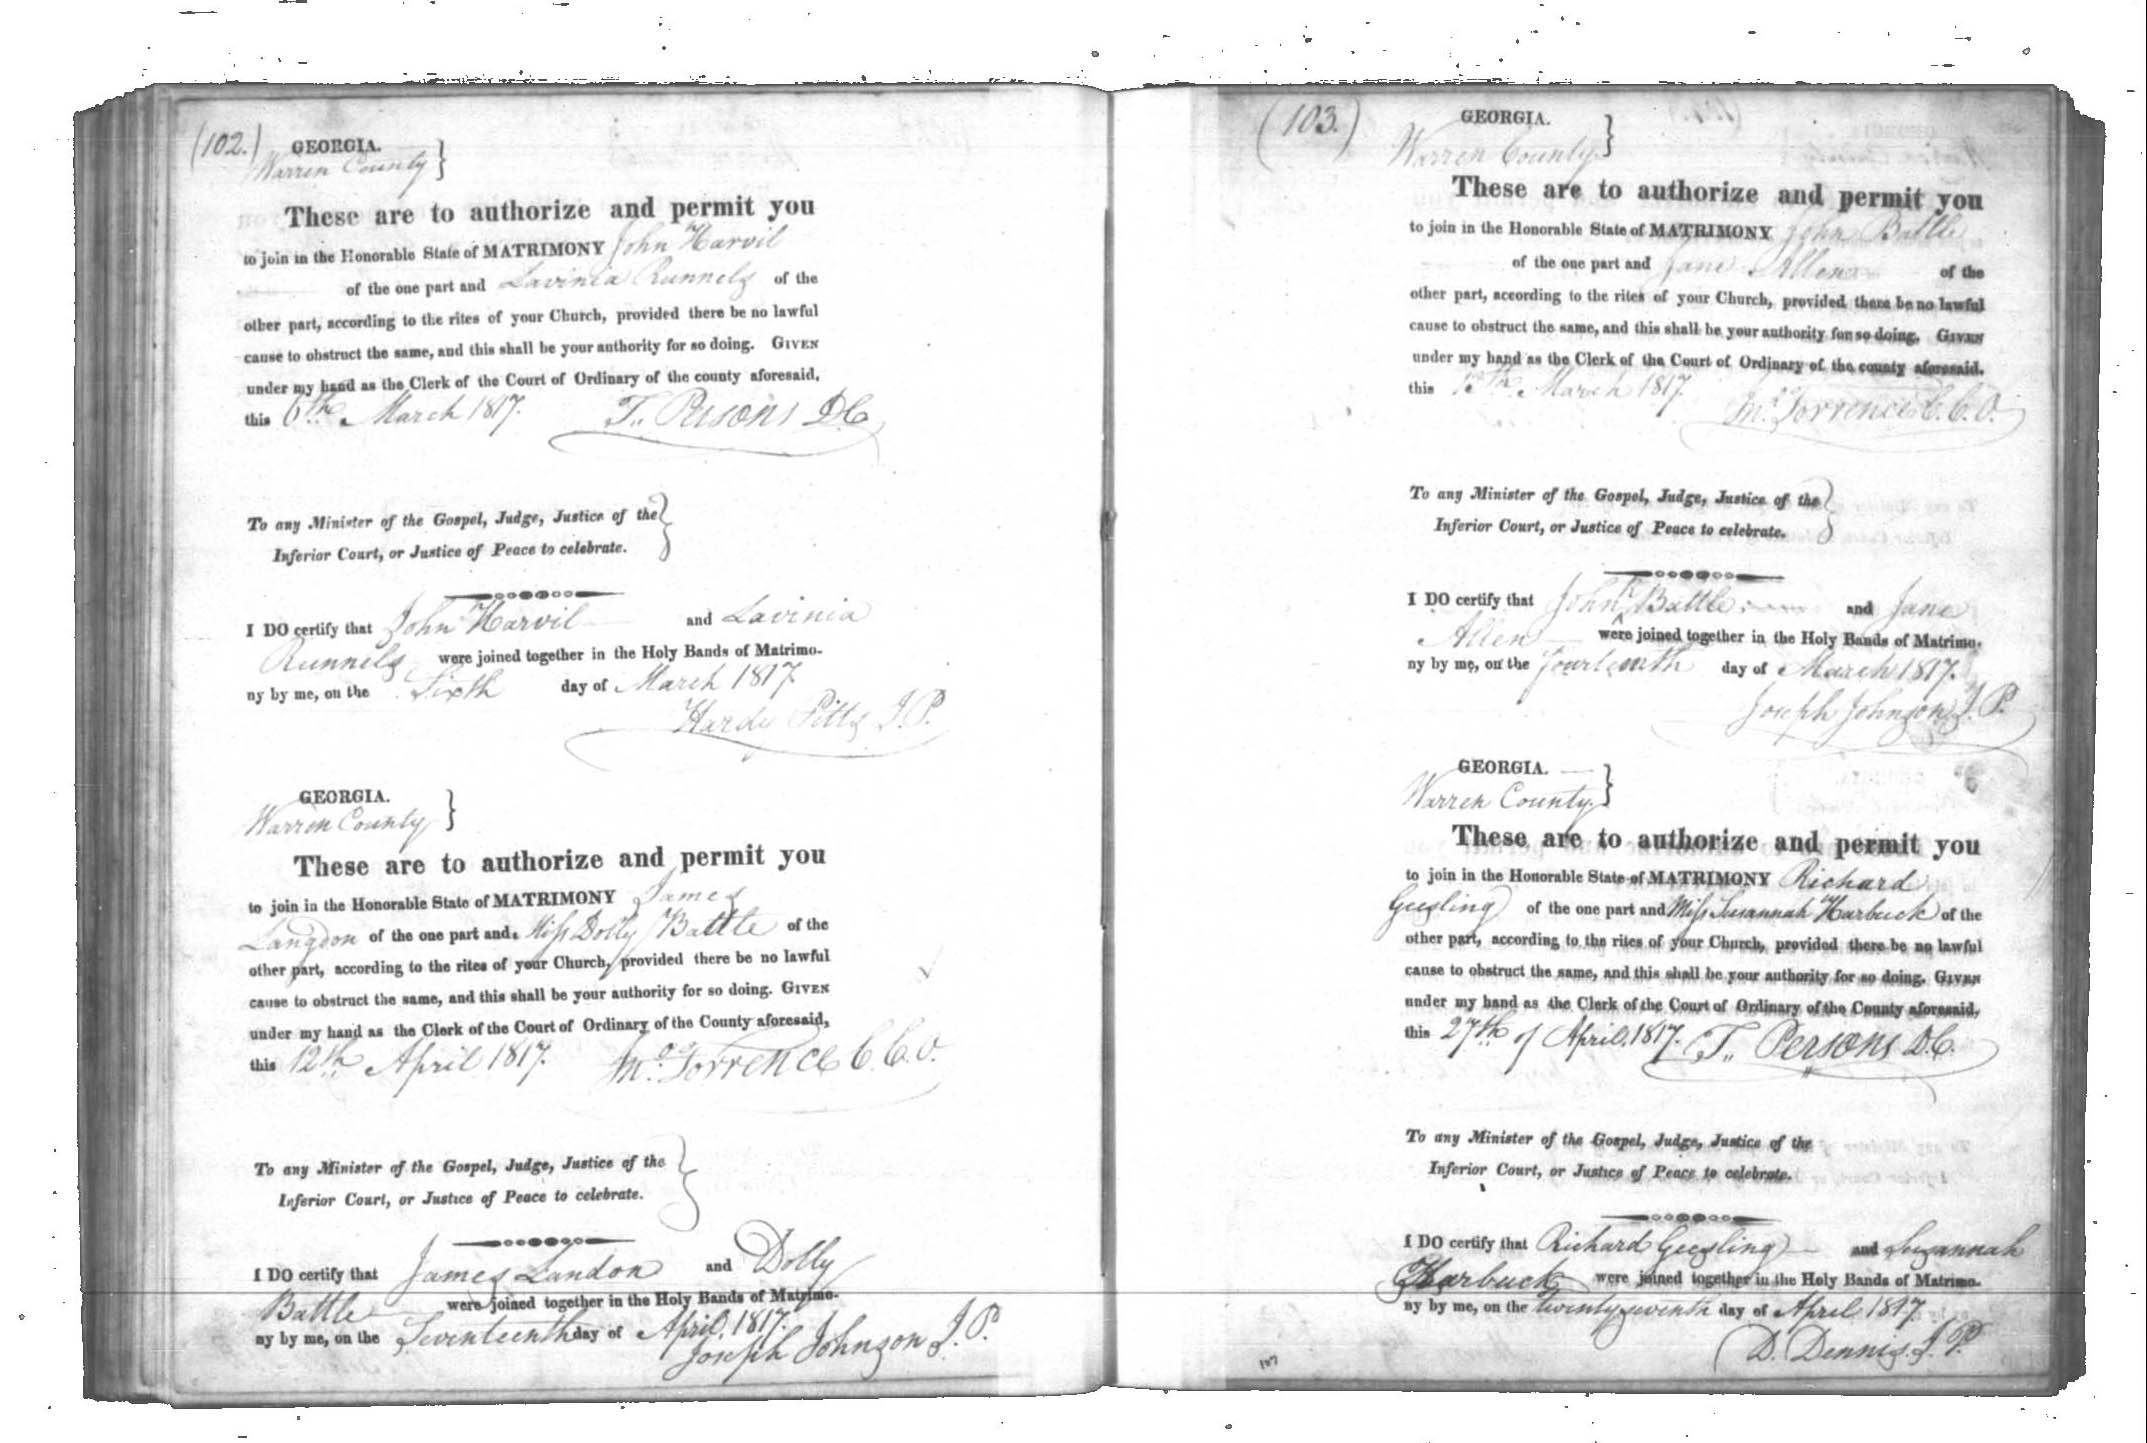 (102.)
GEORGIA.
Warren County }
These are to authorize and permit you
to join in the Honorable State of MATRIMONY John Harvil
of the one part and Lavinia Runnels of the
other part, according to the rites of your Church, provided there be no lawful
cause to obstruct the same, and this shall be your authority for so doing. GIVEN
under my hand as the Clerk of the Court of Ordinary of the county aforesaid,
this 6th March 1817. T. Persons D.C.
To any Minister of the Gospel, Judge, Justice of the }
Inferior Court, or Justice of Peace to celebrate.
I DO certify that John Harvil and Lavinia
Runnels were joined together in the Holy Bands of Matrimo-
ny by me, on the Sixth day of March 1817.
Hardy Pitts J.P.
GEORGIA.
Warren County }
These are to authorize and permit you
to join in the Honorable State of MATRIMONY James
Langdon of the one part and Miss Dolly Battle of the
other part, according to the rites of your Church, provided there be no lawful
cause to obstruct the same, and this shall be your authority for so doing. GIVEN
under my hand as the Clerk of the Court of Ordinary of the County aforesaid,
this 12th April 1817. Torrence C.C.O.
To any Minister of the Gospel, Judge, Justice of the }
Inferior Court, or Justice of Peace to celebrate.
I DO certify that James Landon and Dolly
Battle were joined together in the Holy Bands of Matrimo-
ny by me, on the Seventeenth day of April, 1817.
Joseph Johnson J.P.
(103.)
GEORGIA.
Warren County }
These are to authorize and permit you
to join in the Honorable State of MATRIMONY John Battle
of the one part and Jane Allen of the
other part, according to the rites of your Church, provided there be no lawful
cause to obstruct the same, and this shall be your authority for so doing. GIVEN
under my hand as the Clerk of the Court of Ordinary of the county aforesaid,
this March 1817. Torrence C.C.O.
To any Minister of the Gospel, Judge, Justice of the }
Inferior Court, or Justice of Peace to celebrate.
I DO certify that John Battle and Jane
Allen were joined together in the Holy Bands of Matrimo-
ny by me, on the fourteenth day of March 1817.
Joseph Johnson J.P.
GEORGIA.
Warren County }
These are to authorize and permit you
to join in the Honorable State of MATRIMONY Richard
Geesling of the one part and Miss Susannah Harbuck of the
other part, according to the rites of your Church, provided there be no lawful
cause to obstruct the same, and this shall be your authority for so doing, GIVEN
under my hand as the Clerk of the Court of Ordinary of the County aforesaid,
this 27th of April, 1817. T. Persons D.C.
To any Minister of the Gospel, Judge, Justice of the
Inferior Court, or Justice of Peace to celebrate.
I DO certify that Richard Geesling and Susannah
Harbuck were joined together in the Holy Bands of Matrimo-
ny by me, on the twenty seventh day of April 1817.
D. Dennis. J.P.
107